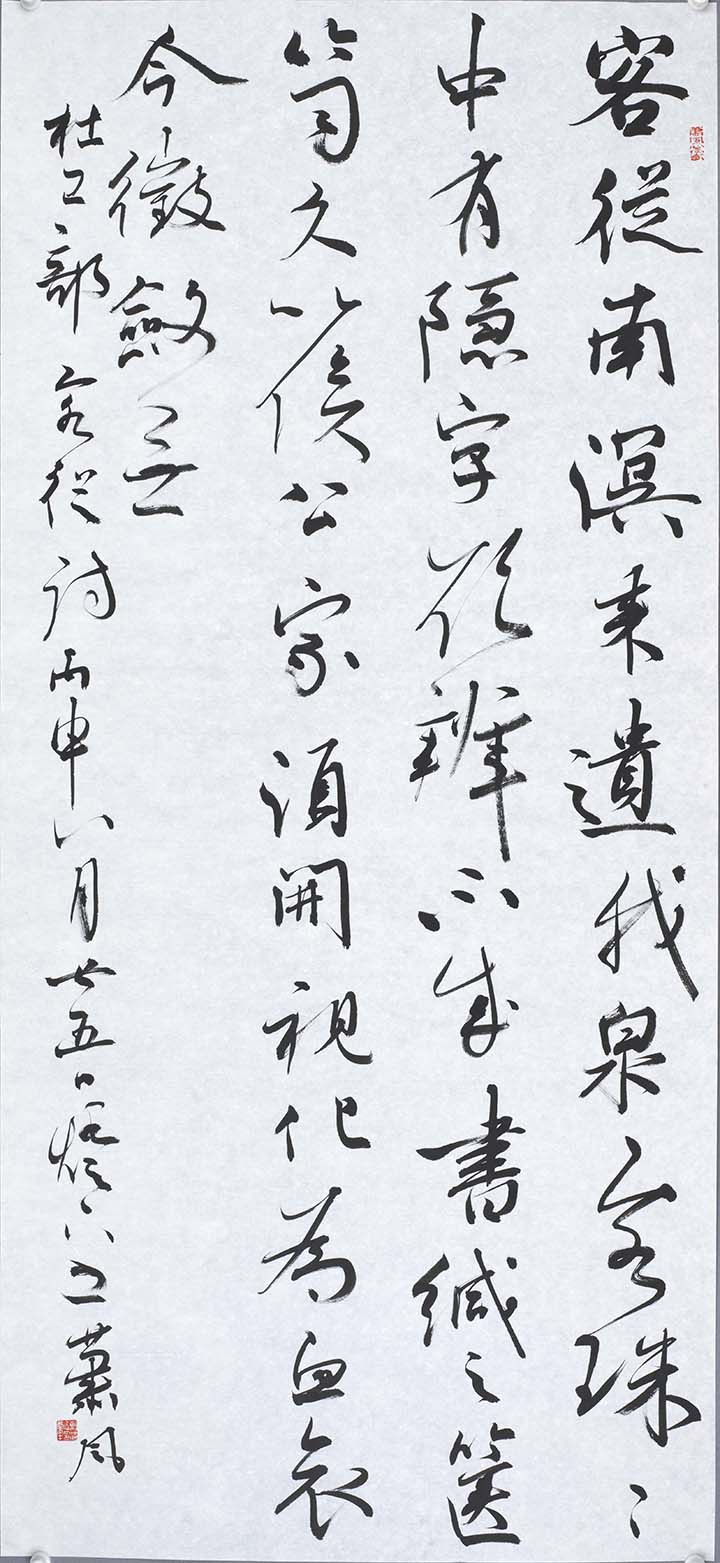 客從南溟來遺我泉客珠〻
中有隱字欲辨不成書緘之篋
笥久以俟公家須開視化為血哀
今徵斂無
杜工部客從詩丙申八月廿五日燈下蕭風